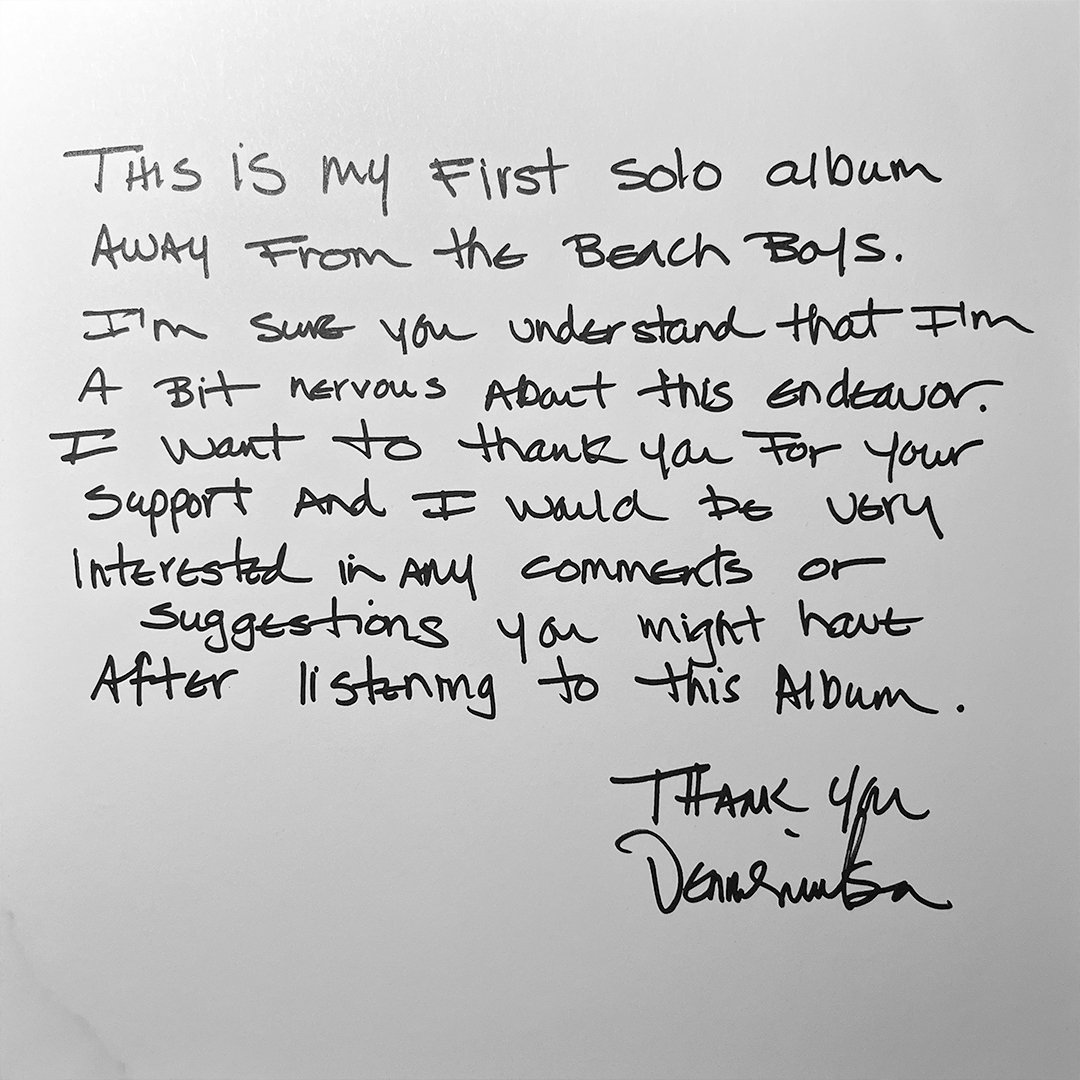 THIS is my First solo album
AWAY From the BEACH BOYS.
I'm sure you understand that I'm
A Bit nervous About this endeavor.
I want to thank you For your
support And I would be very
Interested in Any comments or
suggestions you might have
After listening to this Album.
THANK you
Dennis Wilson